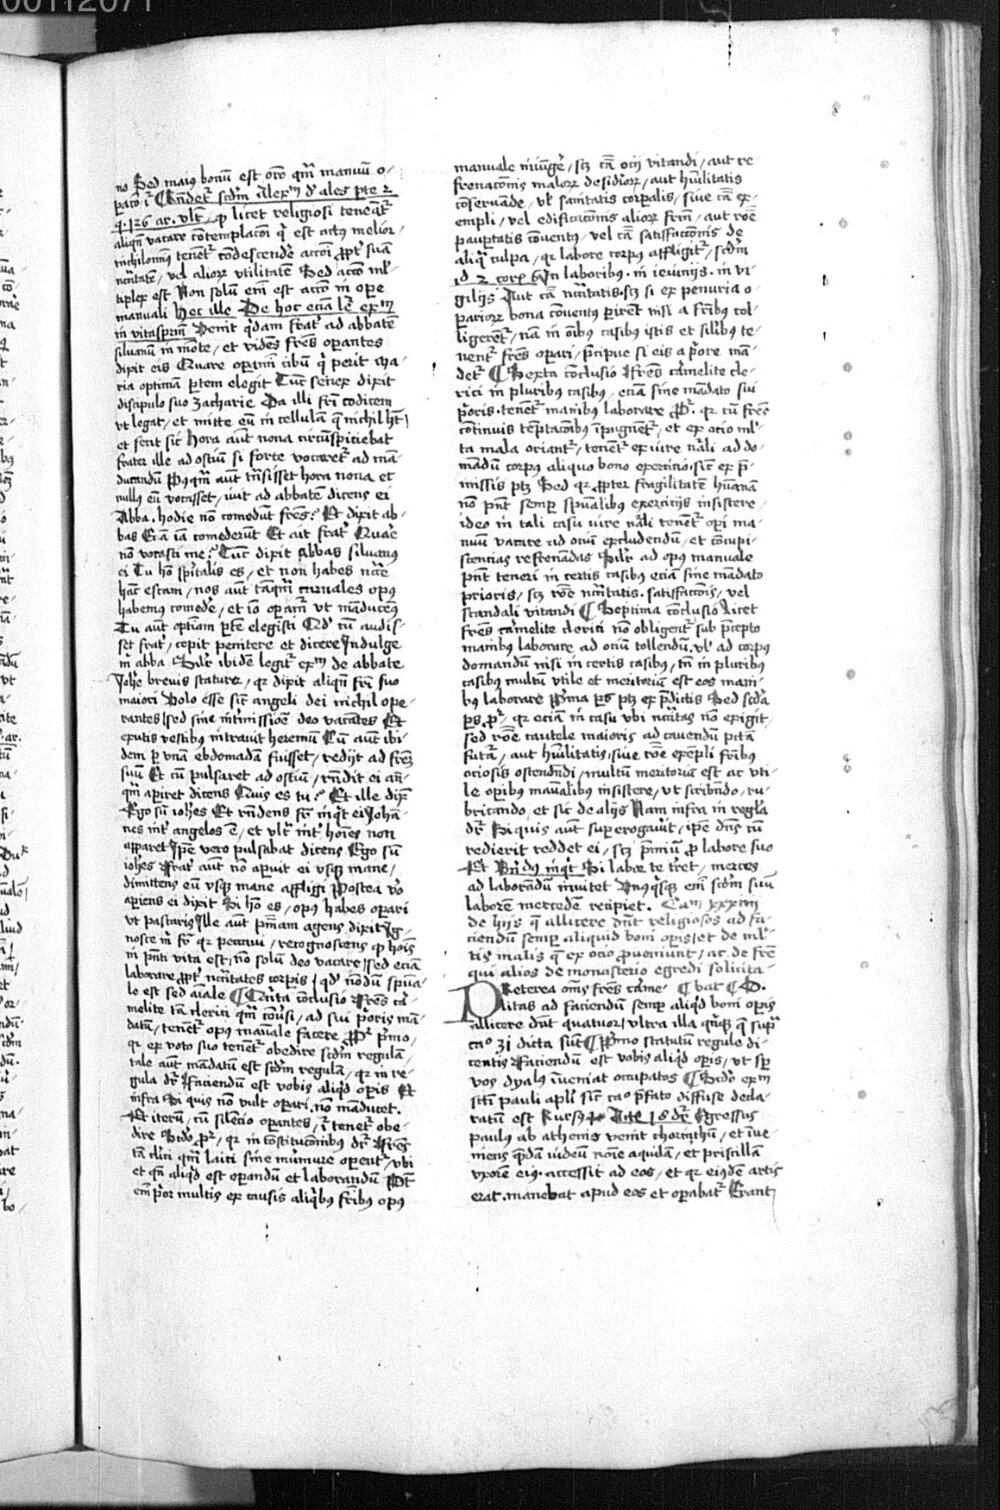 no Sed maiꝰ bonū est oro qm̄ manuū o-
aliqn̄ vacare ꝯtemplacōi q̄ est actꝰ melior
nichilominꝰ tenet̄ ꝯdescendē accōi ꝓpt̄ suā
nc̄itatē / vel alioꝝ vtilitatē Sed accō ml̄-
tiplex est Non solū em̄ est accō in oꝑe
manuali Hec ille De hoc eciā lr̄ exm̄
in vitaspr̄m Venit q̄dam frat̄ ad abbatē
siluanū in mōte / et vidēs fr̄es oꝑantes
dixit eis Quare oꝑamī cibū q̄ ꝑit Ma-
ria optimā ꝑtem elegit Tūc senex dixit
discipulo suo Zacharie Da illi fr̄i codicem
vt legat / et mitte eū in cellulā q̄ nichil hēt
et fecit sic Hora aūt nona circūspiciebat
frater ille ad ostiū si forte vocaret̄ ad mā-
ducandū Pꝰqm̄ aūt trāsisset hora nona et
nullꝰ eū vocasset / iuit ad abbatē dicens ei
Abba . hodie nō comedūt fr̄es ? Et dixit ab-
bas Eciā iā comederūt Et ait frat̄ Quare
nō vocasti me ? Tūc dixit abbas siluanꝰ
ei Tu hō spīritalis es / et non habes nc̄ciē
hāc escam / nos aūt tāqm̄ carnales opꝰ
habemꝰ comedē / et iō oꝑamr̄ vt māducemꝰ
Tu aūt optīam ꝑtē elegisti Qd̄ cū audis-
set frat̄ / cepit penitere et dicere Indulge
m̄ abba Silr̄ ibidē legit̄ exm̄ de abbate
Johē breuis stature / qr̄ dixit aliqn̄ fr̄i suo
maiori Volo esse sic̄ angeli dei nichil oꝑe-
rantes / sed sine int̄missiōe deo vacātes Et
exutis vestibꝰ intrauit heremū Cū aūt ibi-
dem ꝑ vnā ebdomadā fuisset / redijt ad fr̄em
suū Et cū pulsaret ad ostiū / rn̄dit ei an̄-
qm̄ aꝑiret dicens Quis es tu ? Et ille dix̄
Ego sū ioh̄es Et rn̄dens fr̄ inq̄t ei Johā-
nes int̄ angelos ē / et vlt̄ int̄ hoīes non
apparet Ipse vero pulsabat dicens Ego sū
ioh̄es Frat̄ aūt nō aꝑuit ei vsqꝫ mane /
dimittens eū vsqꝫ mane affligi Postea v̄o
aꝑiens ei dixit Si hō es / opꝰ habes oꝑari
vt pascaris Ille aūt pn̄iam agens dixit Ig-
nosce m̄ fr̄ qr̄ peccaui / recognoscens ꝙ hoīs
in pn̄ti vita est / nō solū deo vacare / sed eciā
laborare ꝓpt̄ nc̄itates corꝑis / qd̄ nōdū spūa-
le est sed aīale ¶ Qīnta ꝯclusio Fr̄es ca-
melite tā clerici qm̄ ꝯūsi / ad sui p̄oris mā-
datū / tenent̄ opꝰ manūale facere
qr̄ ex voto suo tenent̄ obedire scd̄m regulā /
tale aūt mādatū est scd̄m regulā / qr̄ in re-
gula dr̄ Faciendū est vobis aliqd̄ oꝑis Et
infra Si quis nō vult oꝑari . nō māducet .
Et iterū / cū silēcio oꝑantes / tenet̄ obe-
dire Scd̄o ꝓr̄ / qr̄ in ꝯstitucōnibꝰ dr̄ Fr̄es
tā cl̄ici qm̄ laici sine mūmure oꝑent̄ / vbi
et qn̄ aliqd̄ est oꝑandū et laborandū
em̄ p̄or multis ex causis aliqꝰ fr̄ibꝰ opꝰ
manuale iniūgē / scꝫ cā ocij vitandi / aut re
frenacōnis maloꝝ desidioꝝ / aut hūilitatis
ꝯseruāde / vl̄ sanitatis corꝑalis / siue cā ex-
empli / vel edificacōnis alioꝝ fr̄m / aut roē
pauꝑtatis ꝯuentꝰ / vel cā satisfaccōnis de
aliq̄ culpa / qr̄ labore corpꝰ affligit̄ / scd̄m
id 2 cor̄ 6 In laboribꝰ . in ieiunijs . in vi-
gilijs Aut cā nc̄itatis . scꝫ si ex penuria o-
ꝑarioꝝ bona ꝯuentꝰ ꝑirēt nisi a fr̄ibꝰ col-
ligerēt̄ / nā in oībꝰ casibꝰ istis et sil̄ibꝰ te-
nent̄ fr̄es oꝑari / p̄cipue si eis a p̄ore mā-
det̄ ¶ Sexta ꝯclusio Fr̄es carmelite cle-
rici in pluribꝰ casibꝰ / eciā sine mādato sui
p̄oris . tenent̄ manibꝰ laborare qr̄ cū fr̄es
ꝯtinuis temptacōibꝰ īpugnēt̄ / et ex ocio ml̄-
ta mala oriant̄ / tenent̄ ex iure nāli ad do-
mādū corpꝰ aliquo bono exercicio . sic̄ ex p̄-
missis ptꝫ Sed qr̄ ꝓpter fragilitatē hūanā
nō pn̄t semꝑ spūalibꝰ exercicijs insistere /
ideo in tali casu iure nāli tenent̄ oꝑi ma-
nuū vacare ad ociū excludendū / et ꝯcupi-
scencias refrenādas Silr̄ ad opꝰ manuale
pn̄t teneri in certis casibꝰ eciā sine mādato
prioris / scꝫ roē nc̄itatis . satisfaccōnis / vel
scandali vitandi ¶ Septima ꝯclusio Licet
fr̄es carmelite clerici nō obligent̄ sub p̄cepto
manibꝰ laborare ad ociū tollendū . vl̄ ad corpꝰ
domandū nisi in certis casibꝰ / tn̄ in pluribꝰ
casibꝰ multū vtile et meritoriū est eos mani-
bꝰ laborare Prīma ꝑs ptꝫ ex p̄dictis Sed scd̄a
ꝑs ꝓr̄ . qr̄ eciā in casu vbi nc̄itas nō exigit /
sed roē cautele maioris ad cauendū pctā
futā / aut hūilitatis . siue roē exēpli fr̄ibꝰ
ociosis ostendendi / multū meritoriū est ac vti-
le oꝑibꝰ manūalibꝰ insistere / vt scribēdo / ru-
bricando / et sic de alijs Nam infra in regla
dr̄ Si quis aūt suꝑerogauīt / ipē dn̄s cū
redierit reddet ei / scꝫ p̄miū ꝓ labore suo
Et Bn̄dꝰ inq̄t Si labor te tr̄et / merces
ad laborādū inuitet Vnꝰqsqꝫ em̄ scd̄m suū
laborē mercedē recipiet . Cam xxxiiij
de hijs q̄ allicere dn̄t religiosos ad fa-
ciendū semꝑ aliquid boni oꝑis / et de ml̄-
tis malis q̄ ex ocio ꝓueniunt / ac de fr̄e
qui alios de monasterio egredi solicita-
Preterea om̄s fr̄es carme ¶ bat ¶ D .
litas ad faciendū semꝑ aliqd̄ boni oꝑis
allicere dn̄t quatuor / vltra illa q̄nqꝫ q̄ supͣ
caᵒ 31 dicta sūt ¶ Primo statutū regule di-
centis Faciendū est vobis aliqd̄ oꝑis / vt sꝑ
vos dyabꝰ īueniat occupatos ¶ Scd̄o exm̄
sct̄i pauli apl̄i sic̄ caᵒ p̄fato diffuse decla-
ratū est Rursꝰ Act̄ 18 dr̄ Egressus
paulꝰ ab athenis venit chorinthū / et īue-
niens q̄ndā iudeū noīe aquilā / et priscillā
vxorē eiꝰ . accessit ad eos / et qr̄ eiꝰdē artis
erat . manebat apud eos et oꝑabat̄ Erant